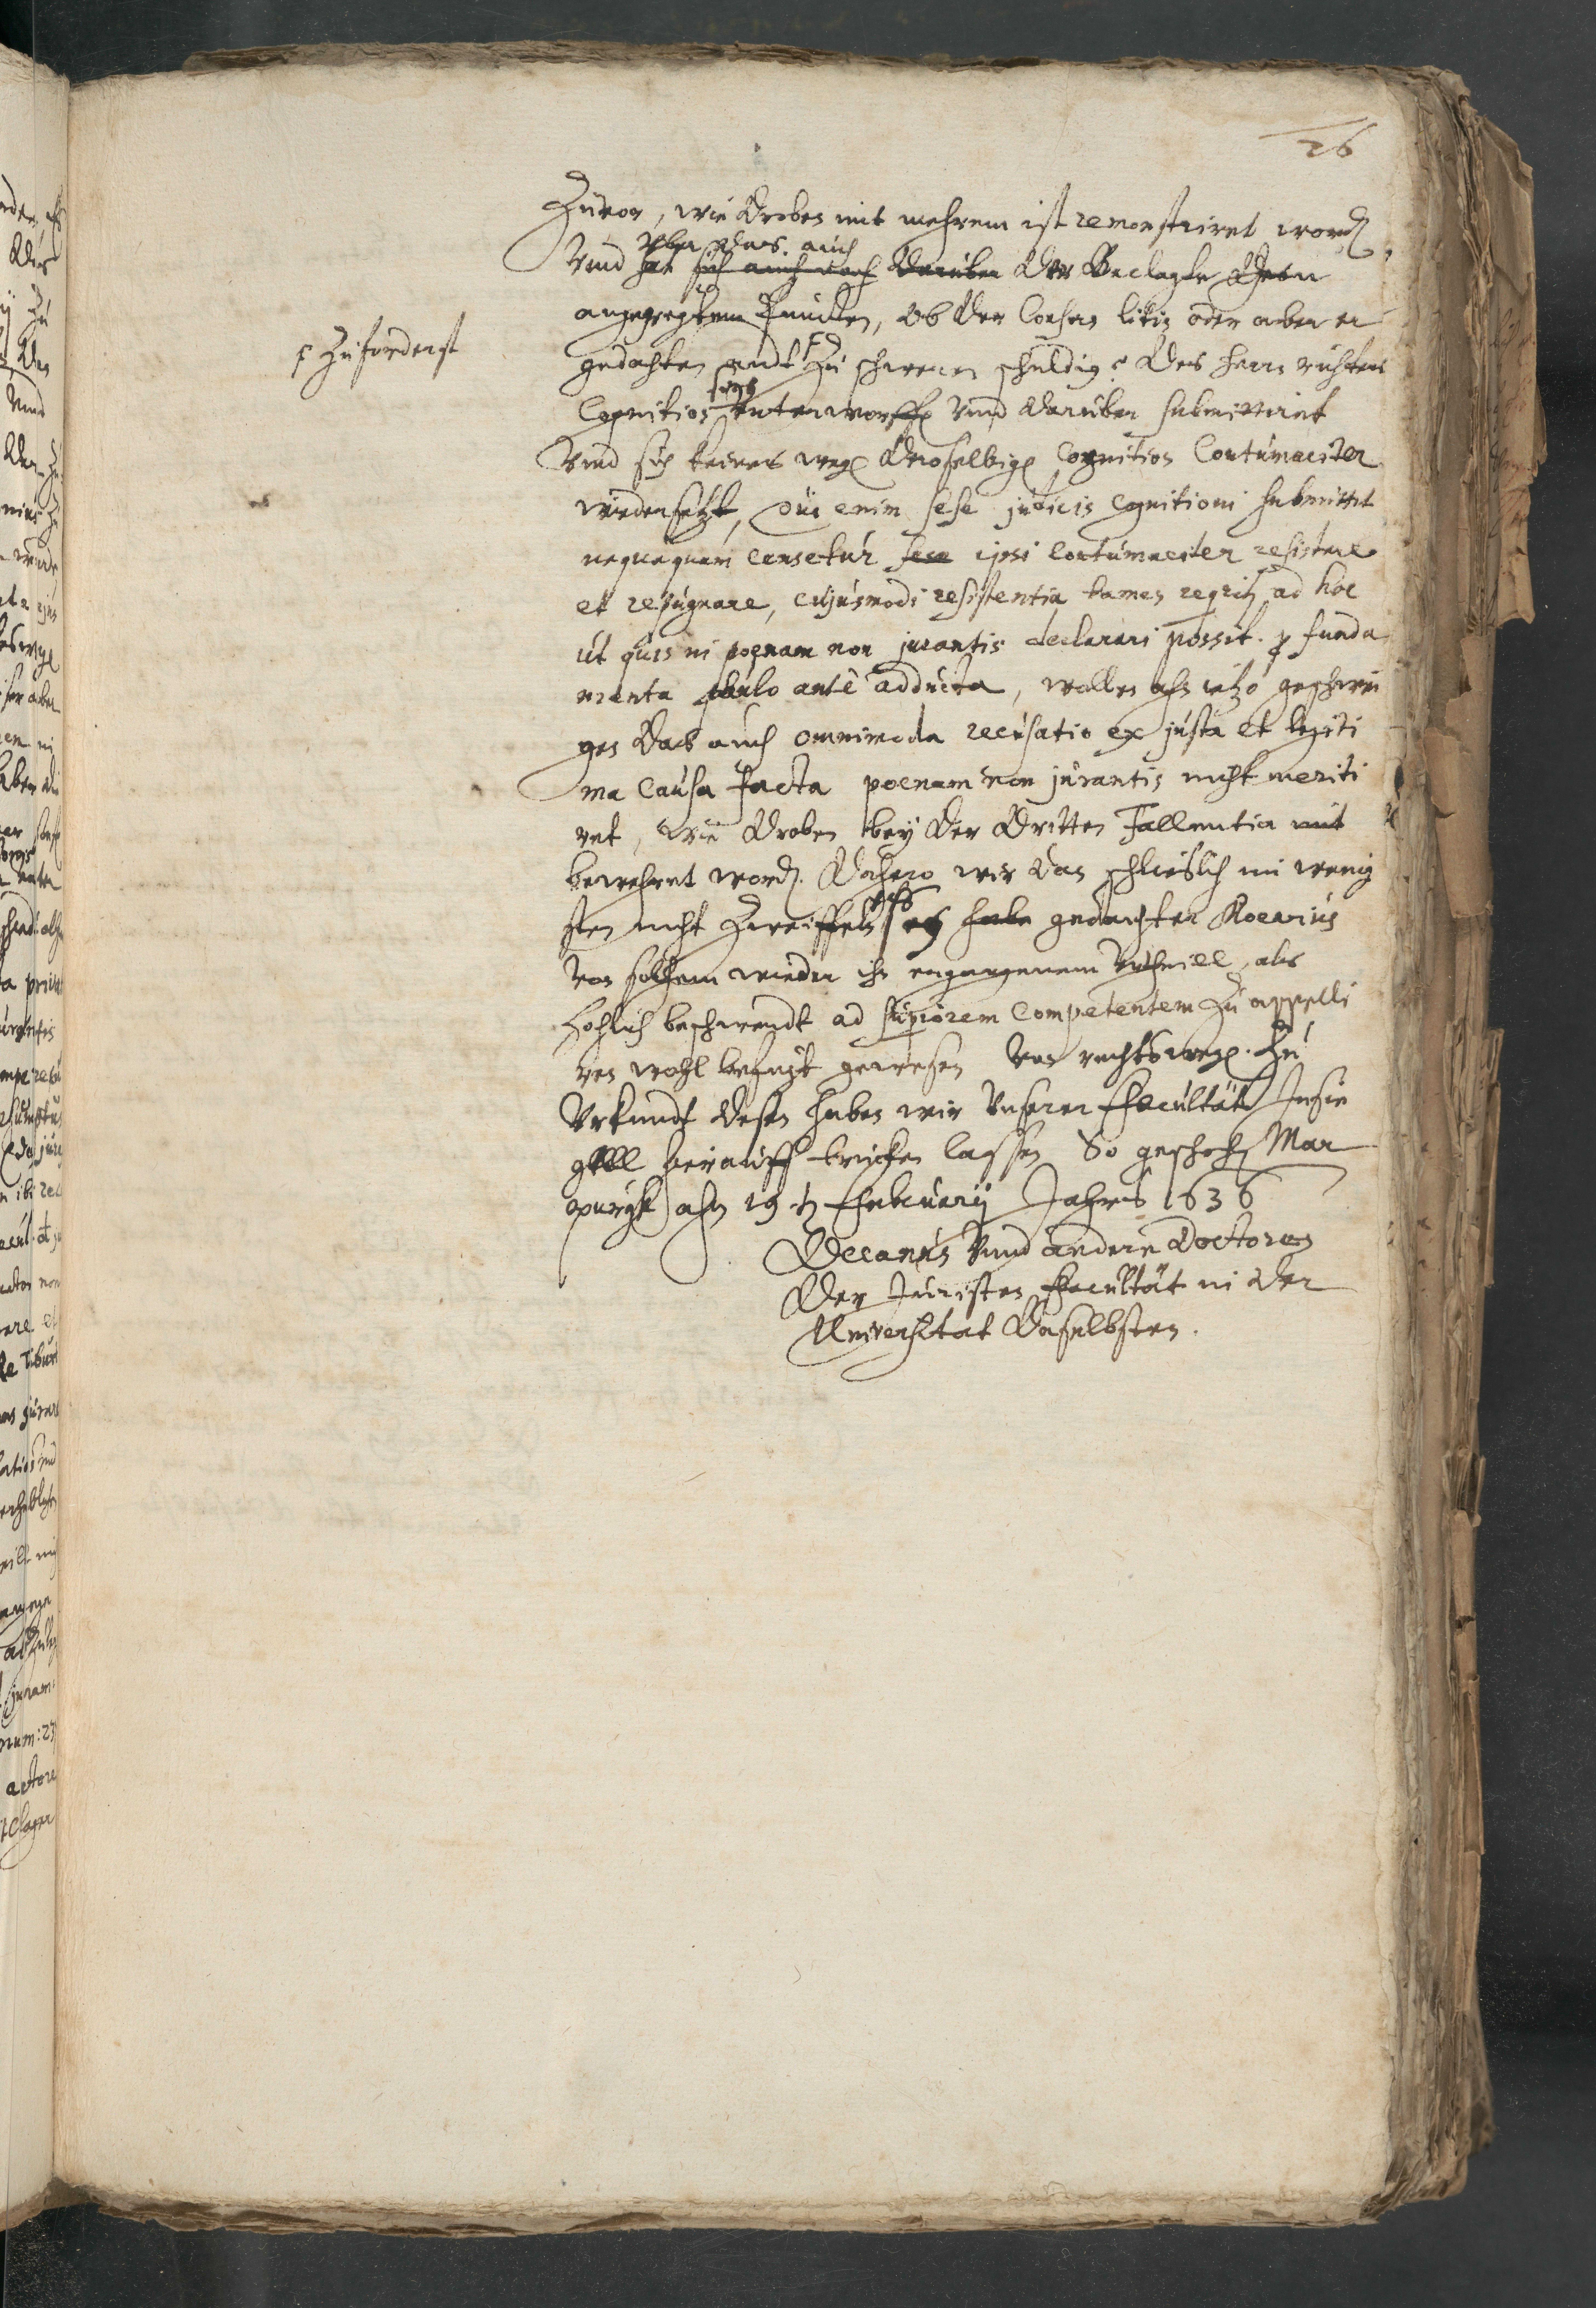 26
Zuvor, wie droben mit mehrem ist remonstriret word
vber das auch
Vnd hat sich auch noch darüber der Beclagte dem
angeregtem Puncten, ob der Consens litis oder aber er
gedachten aydt zu schweren schuldig des herrn richters
ꝼ Zuforderst
Cognition vnterworffen vnd darüber submittiret
Vnd sich keines weg deroselbig Cognition Contumaciter
wiedersetzt, qui enim sese judicis cognitioni submittit
nequaquam censetur sese ipsi contumaciter resistere
et repugnare, cujusmodi resistentia tamen requirit ad hoc
ut quis in poenam non jurantis declarari possit. p funda
menta paulo ante adducta, wollen ahn ietzo geschwei
gen das auch omnimoda recusatio ex justa et legiti
ma causa facta poenam non jurantis nicht meriti
ret, wie droben bey der dritten Fallentia mit
bewehret word. Dahero wir dan schließlich im wenig
sten nicht zweiffeln es habe gedachter Roevius
von solchem wieder ihn ergangenem Vrtheill, als
hochlich beschwerdt ad superiorem competentem zu appelli
ren wohl befugt gewesen von rechtsweg. Zu
Vrkundt desen haben wir Vnserer Facultät Insie
gell hierauff trucken lassen So gescheh Mar
purgk ahn 19 t Februarij Jahrs 1636
Decanus Vnnd andere Doctores
Der Juristen Facultät in der
Universitat daselbsten.